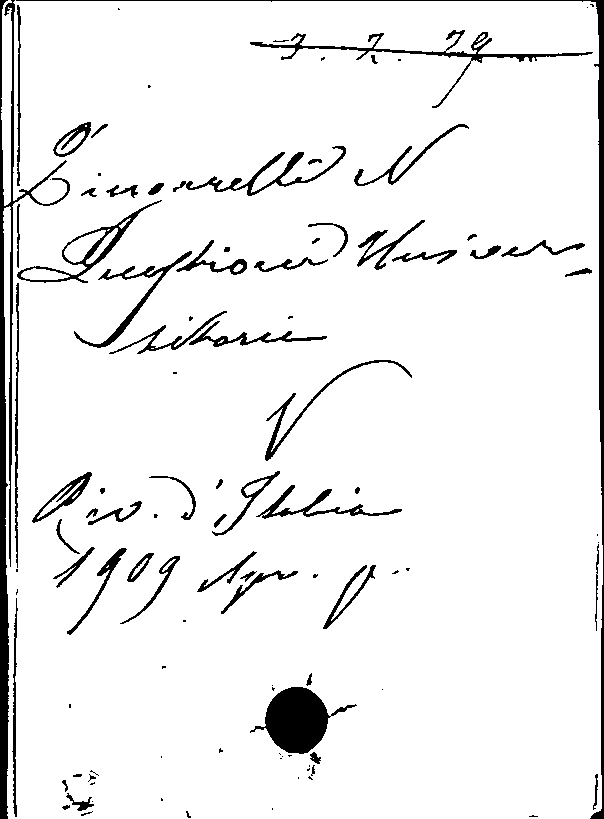 3. 7. 79
Zingarelli N
Questioni Univer-
sitarie
V
Riv. d'Italia
1909 Apr. p.